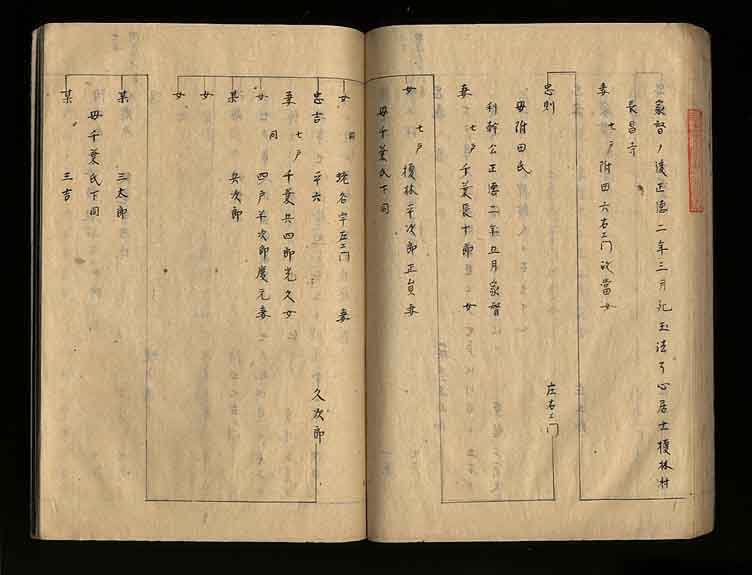 家督ノ後正徳二年三月死玉法了心居士榎林村
長昌寺
妻 七戸 附田六右エ門政當女
忠則 庄右エ門
母附田氏
利幹公正徳二年五月家督
妻 七戸 千葉長十郎女
女 七戸 榎林平次郎正貞妻
母千葉氏下同
女 同 名字左エ門妻
忠吉 平六 久次郎
妻 七戸 千葉共四郎光久女
女 同 四戸平次郎慶元妻
某 兵次郎
女
女
某 三太郎
母千葉氏下同
某 三吉